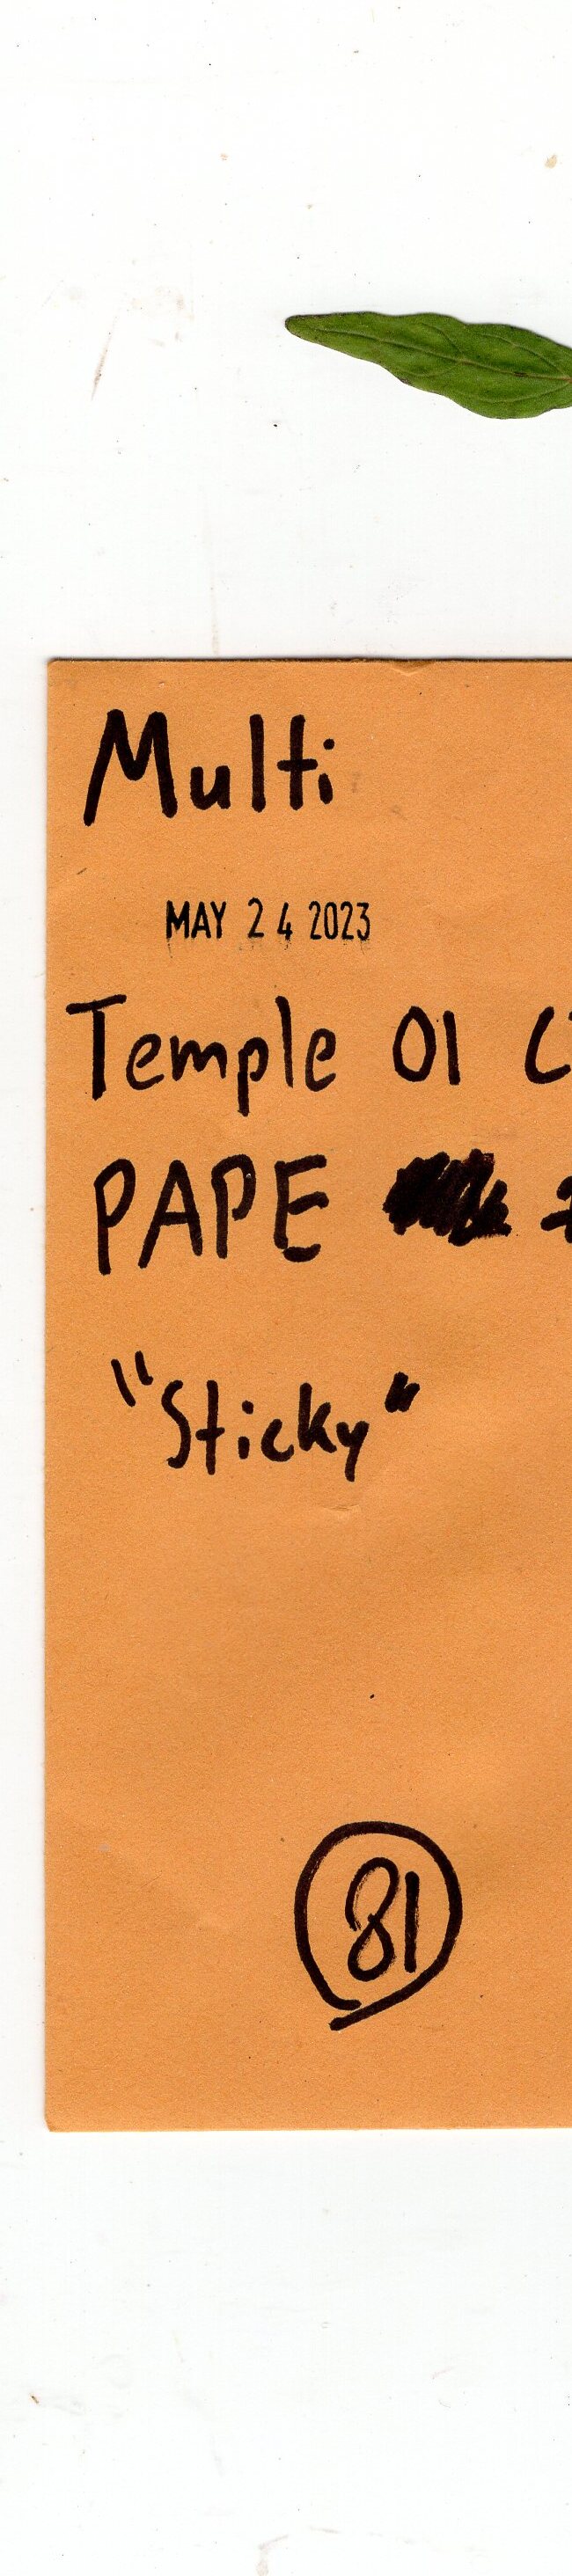 Multi
MAY 24 2023
Temple 01
PAPE
"Sticky"
81